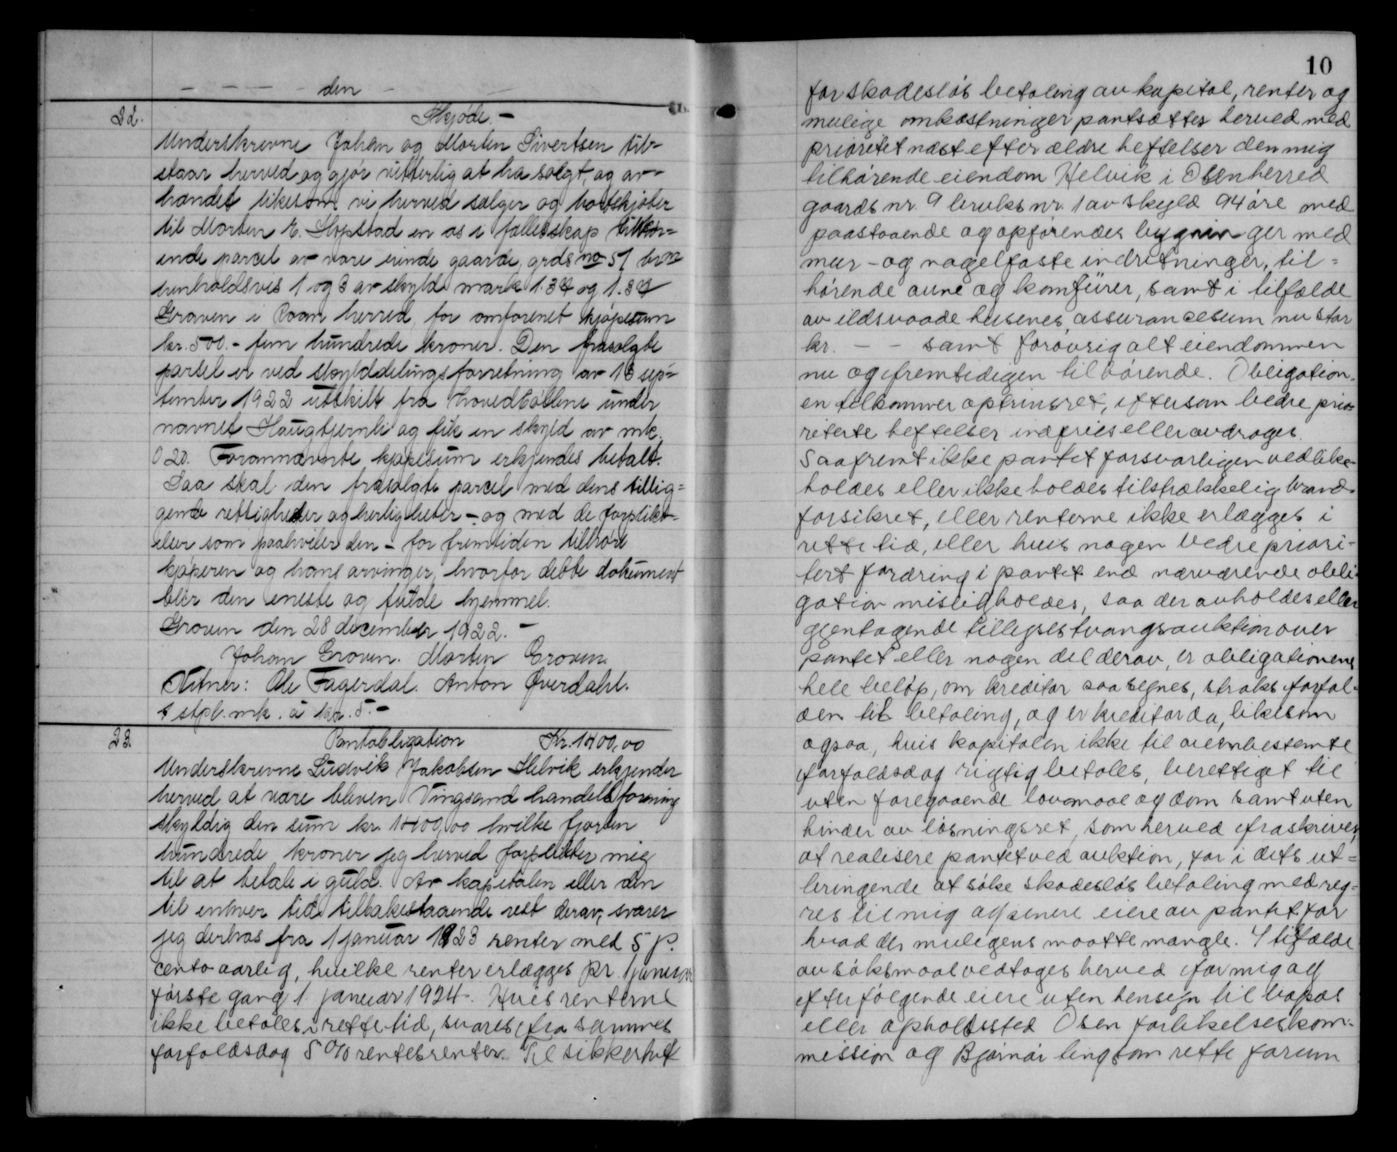 den
22. Skjøde. -
Underskrevne Johan og Morten Sivertsen til-
staar herved og gjør vitterlig at ha solgt, og av-
hændet likesom vi herved sælger og bortskjøter
til Morten E. Stopstad en os i fællesskap tilhør-
ende parcel av vore eiende gaarde, grds no 57 brno
henholdsvis 1 og 3 av skyld mark 1.34 og 1.34
Groven i Roan herred for omforenet kjøpesum
kr. 500.- fem hundrede kroner. Den frasolgte
parcel er ved skylddelingsforretning av 13 sep-
tember 1922 utskilt fra hovedbølene under
navnet Haugtjernli og fik en skyld av mk.
0 20. Forannævnte kjøpesum erkjendes betalt.
Saa skal den frasolgte parcel med dens tillig-
gende rettigheter og herligheter - og med de forplikt-
elser som paahviler den - for fremtiden tilhøre
kjøperen og hans arvinger, hvorfor dette dokument
blir den eneste og fulde hjemmel.
Groven den 28 december 1922. -
Johan Groven. Morten Groven.
Vitner: Ole Fagerdal. Anton Øverdahl.
stpl. mk. à kr. 5. -
23. Pantobligation Kr. 1400,00
Underskrevne Ludvik Jakobsen Helvik erkjender
herved at være bleven Vingsand handelsforening
skyldig den sum kr. 1400,00 hvilke fjorten
hundrede kroner jeg herved forplikter mig
til at betale i guld. Av kapitalen eller den
til enhver tid tilbakestaaende rest derav, svarer
jeg derhos fra 1 januar 1923 renter med 5 p.
cento aarlig, hvilke renter erlægges pr. 1 januar
første gang 1 januar 1924. Hvis renterne
ikke betales i rette tid, svares fra sammes
forfaldsdag 5 % rentesrenter. Til sikkerhet
10
for skadesløs betaling av kapital, renter og
mulige omkostninger pantsættes herved med
prioritet næst efter ældre heftelser den mig
tilhørende eiendom Helvik i Osen herred
gaards nr. 9 bruks nr. 1 av skyld 94 øre med
paastaaende og opførendes bygninger med
mur- og nagelfaste indretninger, til-
hørende ovne og komfürer, samt i tilfælde
av ildsvaade husenes assurancesum nu stor
kr. - - samt forøvrig alt eiendommen
nu og i fremtidigen tilhørende. Obligation-
en tilkommer optrinsret, eftersom bedre prio-
riterte heftelser indfries eller avdrages.
Saafremt ikke pantet forsvarligen vedlike-
holdes eller ikke holdes tilstrækkelig brand-
forsikret, eller renterne ikke erlægges i
rette tid, eller hvis nogen bedre priori-
tert fordring i pantet end nærværende obli-
gation misligholdes, saa der avholdes eller
gjentagende tillyses tvangsauktion over
pantet eller nogen del derav, er obligationens
hele beløp, om kreditor saa synes, straks forfal-
den til betaling, og er kreditor da, likesom
ogsaa, hvis kapitalen ikke til overnbestemte
forfaldsdag rigtig betales, berettiget til
uten foregaaende lovmaal og dom samt uten
hinder av løsningsret, som herved fraskrives,
at realisere pantet ved auktion, for i dets ut-
bringende at søke skadesløs betaling med reg-
res til mig og senere eiere av pantet for
hvad der muligens maatte mangle. I tilfælde
av søksmaal vedtages herved for mig og
efterfølgende eiere uten hensyn til bopæl
eller opholdssted Osen forlikelseskom-
mission og Bjørnør ting som rette forum